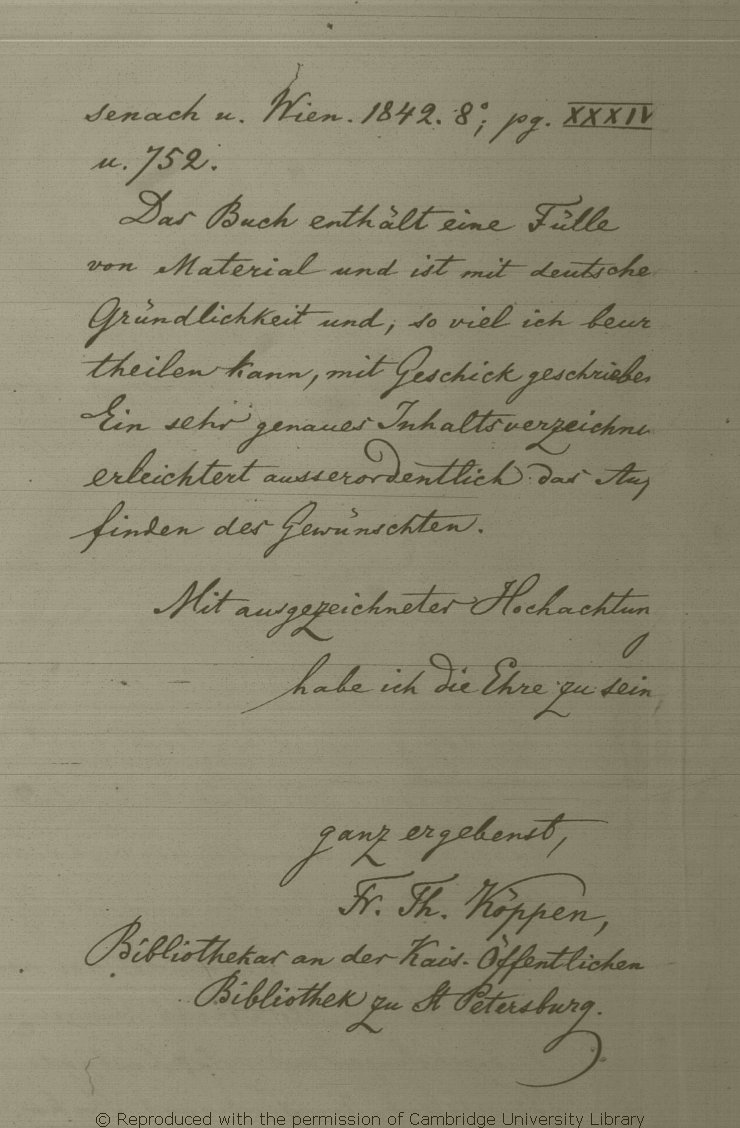 senach u. Wien. 1842. 8°; pg. XXXIV
u. 752.
Das Buch enthält eine Fülle
von Material und ist mit deutsche
Gründlichkeit und, so viel ich beur
theilen kann, mit Geschick geschrieben
Ein sehr genaues Inhaltsverzeichni
erleichtert ausserordentlich das Auf
finden des Gewünschten.
Mit ausgezeichneter Hochachtung
habe ich die Ehre zu sein
ganz ergebenst,
Fr. Th. Köppen,
Bibliothekar an der Kais. Öffentlichen
Bibliothek zu St Petersburg.
© Reproduced with the permission of Cambridge University Library